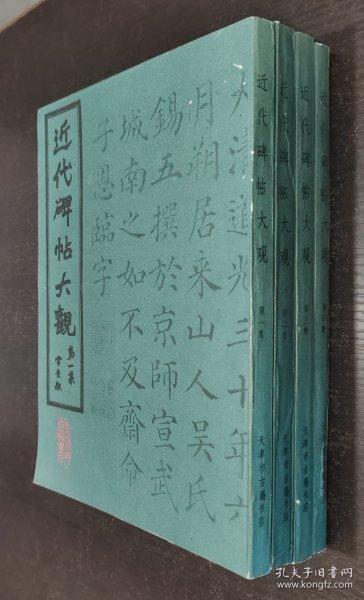 近代碑帖大觀
第一集
大清道光三十年六
月朔居采山人吴氏
錫五撰於京師宣武
城南之如不及齋命
子恩臨字
近代碑帖大观
第一集
天津市古籍书店
近代碑帖大观
第二集
天津市古籍书店
近代碑帖大观
天津市古籍书店
近代碑帖大观
天津市古籍书店
孔夫子旧书网